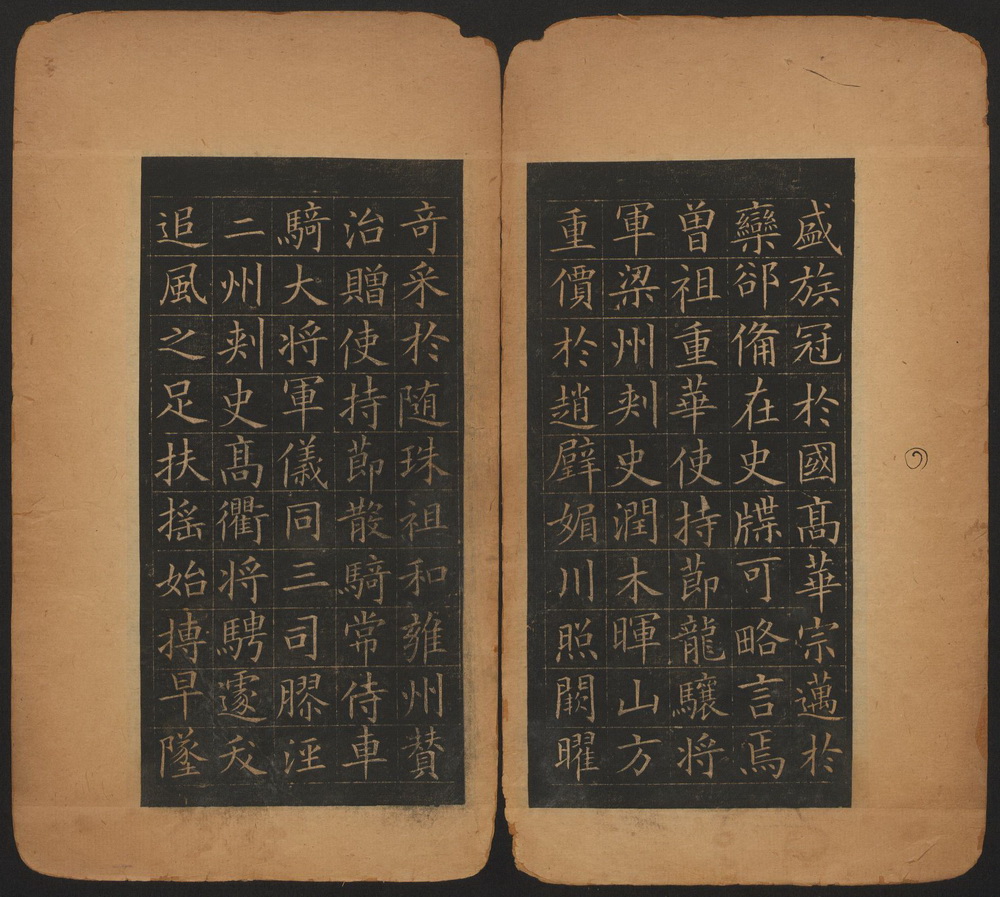 盛族冠於國高華宗邁於
欒郤備在史牒可略言焉
曾祖重華使持節龍驤将
軍梁州刺史潤木暉山方
重價於趙璧媚川照闕曜
奇采於随珠祖和雍州賛
治贈使持節散騎常侍車
騎大将軍儀同三司膠涇
二州刺史髙衢将騁遽夭
追風之足扶摇始摶早墜